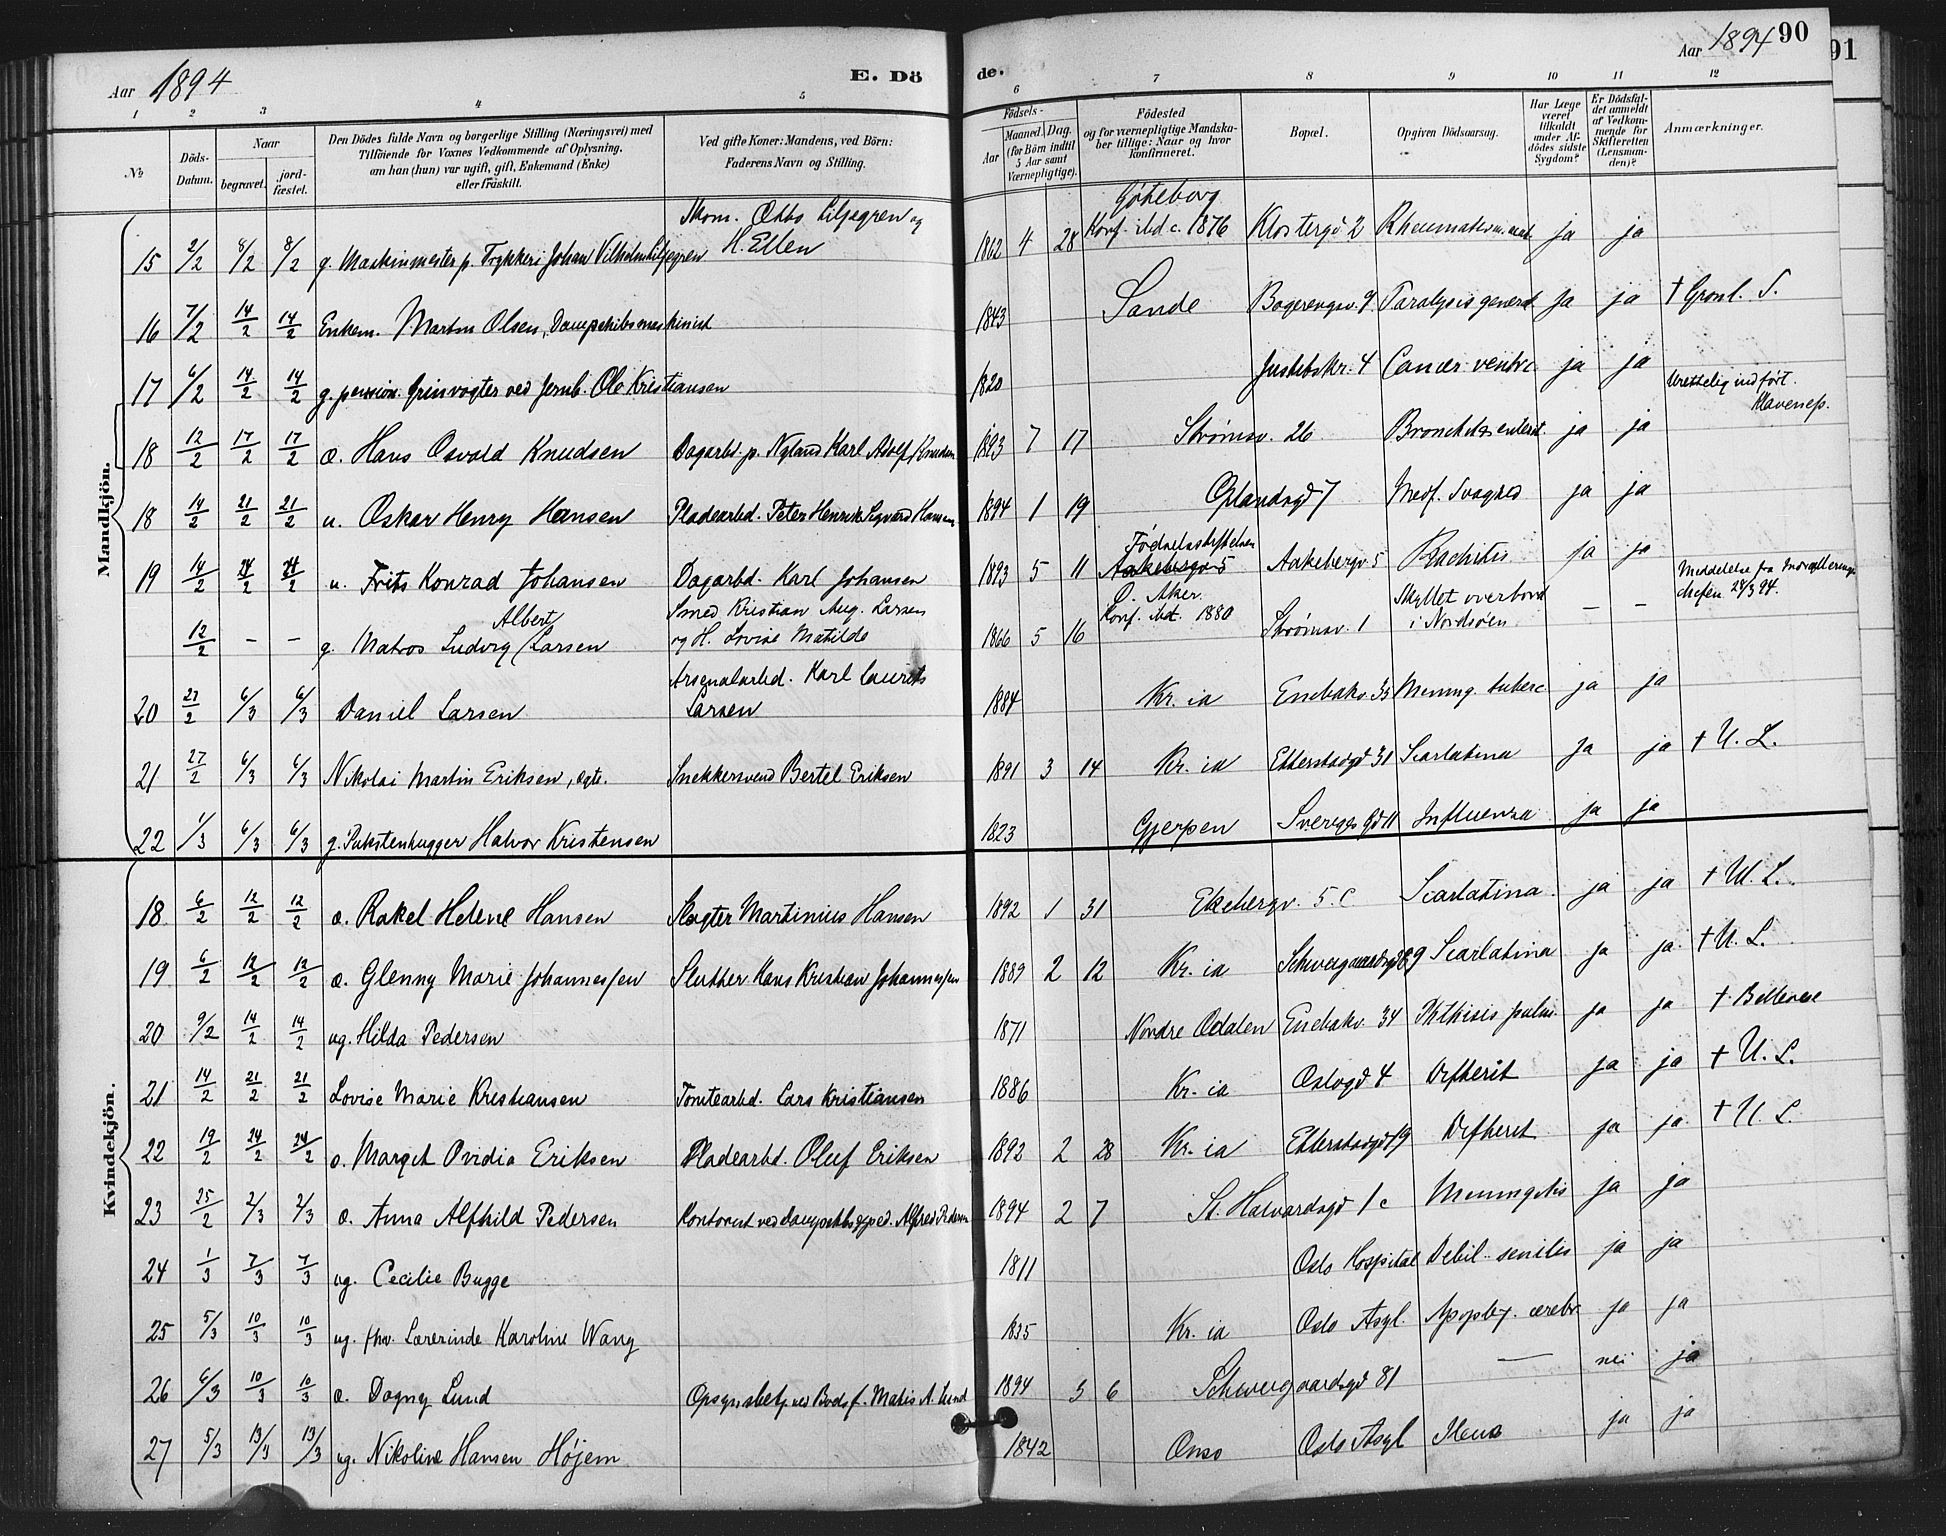 Aar 1894
E. Dö
de.
Aar 1894 90
91
1 2 3 4 5 6 7 8 9 10 11 12
No
Döds-Datum.
Naar
begravet.
jord-fæstet.
Den Dödes fulde Navn og borgerlige Stilling (Næringsvei) med
Tilföiende for Voxnes Vedkommende af Oplysning,
om han (hun) var ugift, gift, Enkemand (Enke)
eller fraskilt.
Ved gifte Koner: Mandens, ved Börn:
Faderens Navn og Stilling.
Födsels-
Aar
Maaned. Dag.
(for Börn indtil
5 Aar samt
Værnepligtige).
Födested
og for værnepligtige Mandska-
ber tillige: Naar og hvor
konfirmeret.
Bopæl.
Opgiven Dödsaarsag.
Har Læge
været
tilkaldt
under Af-
dödes sidste
Sygdom?
Er Dödsfal-
det anmeldt
af Vedkom-
mende for
Skifteretten
(Lensman-
den)?
Anmærkninger.
Mandkjön.
Otto Liljegren og Göteborg
15 2/2 8/2 8/2 g. Maskinmester p. Trykkeri Johan Vilhelm Liljegren H. Ellen 1862 4 28 Konf. ibd. c. 1876 Klostergd 2 Rheumatism. ja ja
16 7/2 14/2 14/2 Enkem. Martin Olsen, Dampskibsmaskinist 1843 Sande Bogerengv. 9 Paralysis general. ja ja † Gronl. S.
17 6/2 14/2 14/2 g. pension. Grinvogter ved Jernb. Ole Kristiansen 1820 4 Cancer ventric. ja ja
Urettelig indfört.
18 12/2 17/2 17/2 æ. Hans Osvald Knudsen Dagarbd. p. Nyland Karl Adolf Knudsen 1893 7 17 Strömsv. 26 ja ja
18 14/2 21/2 21/2 u. Oskar Henry Hansen Pladearbd. Peter Henrik Sigvard Hansen 1894 1 19 Grlandsgd 7 Medf. Svaghed ja ja
Födselsstiftelsen
19 14/2 24/2 24/2 u. Frits Konrad Johansen Dagarbd. Karl Johansen 1893 5 11 Aakebergv 5 Aakebergv 5 Rachitis ja ja
Albert Smed Kristian Aug. Larsen Ö. Aker. Skyllet overbord chefen 28/3 94.
12/2 - - g. Matros Ludvig Larsen og H. Lovise Matilde 1866 5 16 Konf. ibd. 1880 Strömsv. 1 i Nordsöen - -
Arsenalarbd. Karl Laurits
20 27/2 6/3 6/3 Daniel Larsen Larsen 1884 Kr.ia Enebakv. 35 Mening. tuberc. ja ja
21 27/2 6/3 6/3 Nikolai Martin Eriksen, ægte. Snekkersvend Bertel Eriksen 1891 3 14 Kr.ia Etterstadgd 31 Scarlatina ja ja † U. L.
22 1/3 6/3 6/3 g. Pukstenhugger Halvor Kristensen 1823 Gjerpen Sverresgd 11 Influenza ja ja
Kvindekjön.
18 6/2 12/2 12/2 æ. Rakel Helene Hansen Slagter Martinius Hansen 1892 1 31 Ekebergv. 5 c Scarlatina ja ja † U. L.
19 6/2 12/2 12/2 æ. Glenny Marie Johannessen Slutter Hans Kristian Johannessen 1889 2 12 Kr.ia Schweigaardsgd 89 Scarlatina ja ja † U. L.
20 9/2 14/2 14/2 ug. Hilda Pedersen 1871 Nordre Odalen Enebakv. 34 Phthisis pulm. ja ja † Bellevue
21 14/2 21/2 21/2 Lovise Marie Kristiansen Tomtearbd. Lars Kristiansen 1886 Kr.ia Oslogd 4 Difterit ja ja † U. L.
22 19/2 24/2 24/2 æ. Margit Ovidia Eriksen Pladearbd. Oluf Eriksen 1892 2 28 Kr.ia Etterstadgd 19 Difterit ja ja † U. L.
23 25/2 2/3 2/3 æ. Anna Alfhild Pedersen Kontorist ved Dampskibsexped. Alfred Pedersen 1894 2 7 St. Halvardsgd 1 c Meningitis ja ja
24 1/3 7/3 7/3 ug. Cecilie Bugge 1811 Oslo Hospital Debil. senilis ja ja
25 5/3 10/3 10/3 ug. fhv. Lærerinde Karoline Wang 1835 Kr.ia Oslo Asyl. Apoplex. cerebr. ja ja
26 6/3 10/3 10/3 æ. Dagny Lund Opsynsbetj. ved Bodsf. Matis A. Lund 1894 3 6 Schweigaardsgd 81 — nei ja
27 5/3 13/3 13/3 ug. Nikoline Hansen Höjem 1842 Onsö Oslo Asyl Ileus ja ja